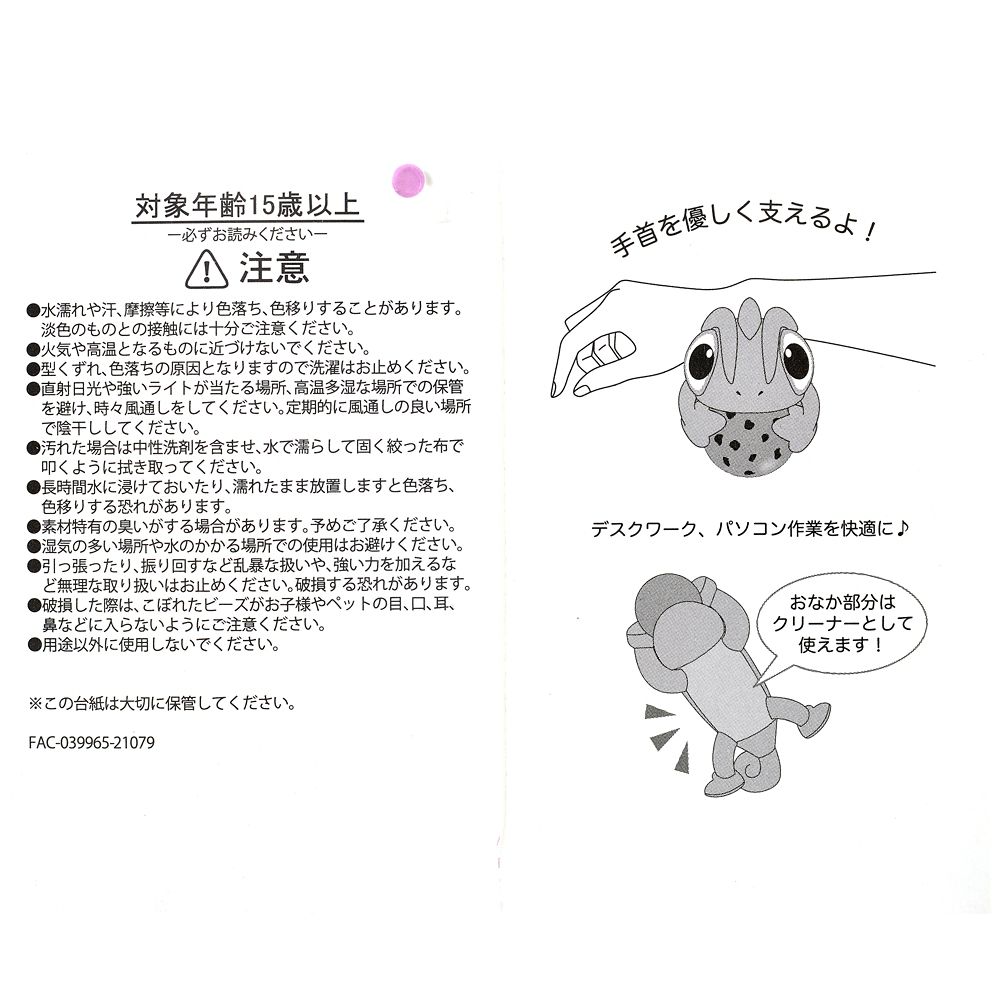 対象年齢15歳以上
ー必ずお読みくださいー
注意
●水濡れや汗、摩擦等により色落ち、色移りすることがあります。
淡色のものとの接触には十分ご注意ください。
●火気や高温となるものに近づけないでください。
●型くずれ、色落ちの原因となりますので洗濯はお止めください。
●直射日光や強いライトが当たる場所、高温多湿な場所での保管
を避け、時々風通しをしてください。定期的に風通しの良い場所
で陰干ししてください。
●汚れた場合は中性洗剤を含ませ、水で濡らして固く絞った布で
叩くように拭き取ってください。
●長時間水に浸けておいたり、濡れたまま放置しますと色落ち、
色移りする恐れがあります。
●素材特有の臭いがする場合があります。予めご了承ください。
●湿気の多い場所や水のかかる場所での使用はお避けください。
●引っ張ったり、振り回すなど乱暴な扱いや、強い力を加えるな
ど無理な取り扱いはお止めください。破損する恐れがあります。
●破損した際は、こぼれたビーズがお子様やペットの目、口、耳、
鼻などに入らないようにご注意ください。
●用途以外に使用しないでください。
※この台紙は大切に保管してください。
FAC-039965-21079
手首を優しく支えるよ！
デスクワーク、パソコン作業を快適に♪
おなか部分は
クリーナーとして
使えます！